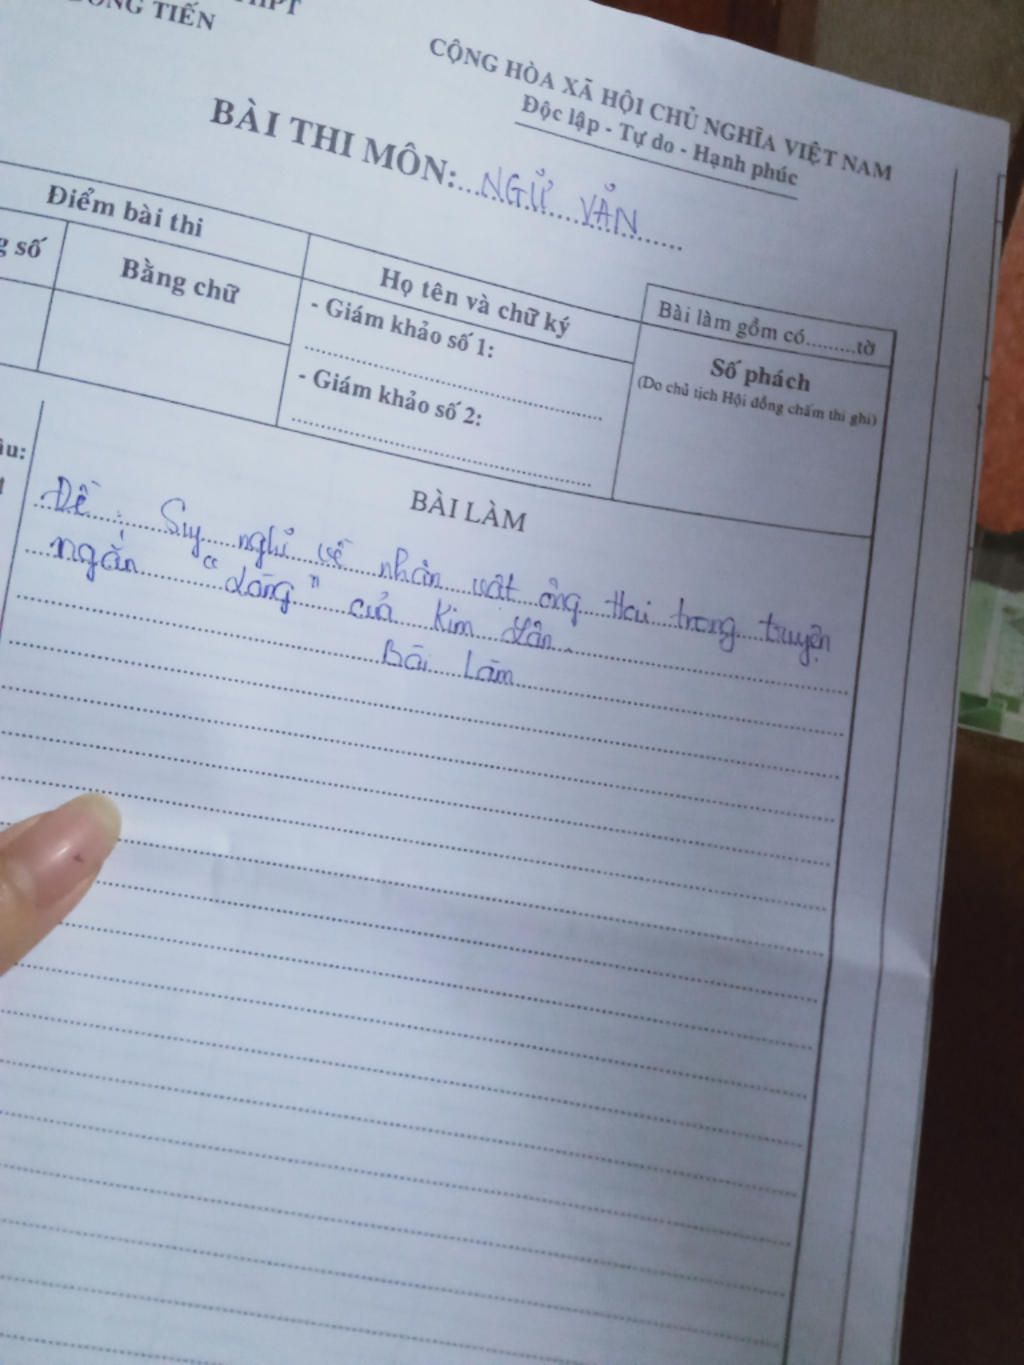 TIẾN
CỘNG HÒA XÃ HỘI CHỦ NGHĨA VIỆT NAM
Độc lập - Tự do - Hạnh phúc
BÀI THI MÔN: NGỮ VĂN
Điểm bài thi
Họ tên và chữ ký
Bài làm gồm có.........tờ
số
Bằng chữ
- Giám khảo số 1:
Số phách
(Do chủ tịch Hội đồng chấm thi ghi)
- Giám khảo số 2:
BÀI LÀM
Đề: Suy nghĩ về nhân vật ông Hai trong truyện
ngắn "Làng" của Kim Lân.
Bài làm